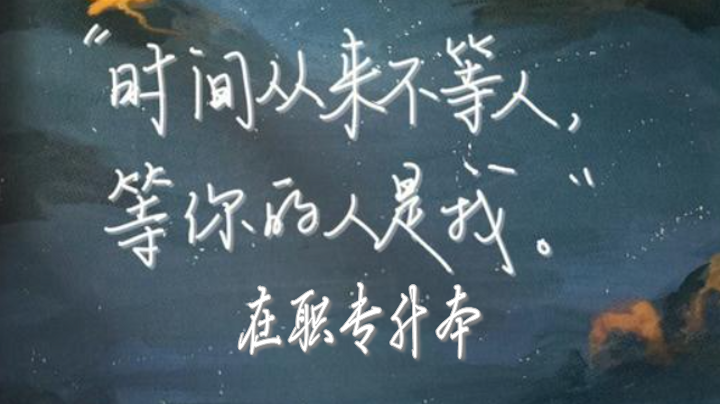 “时间从来不等人，
等你的人是我。”
在职专升本